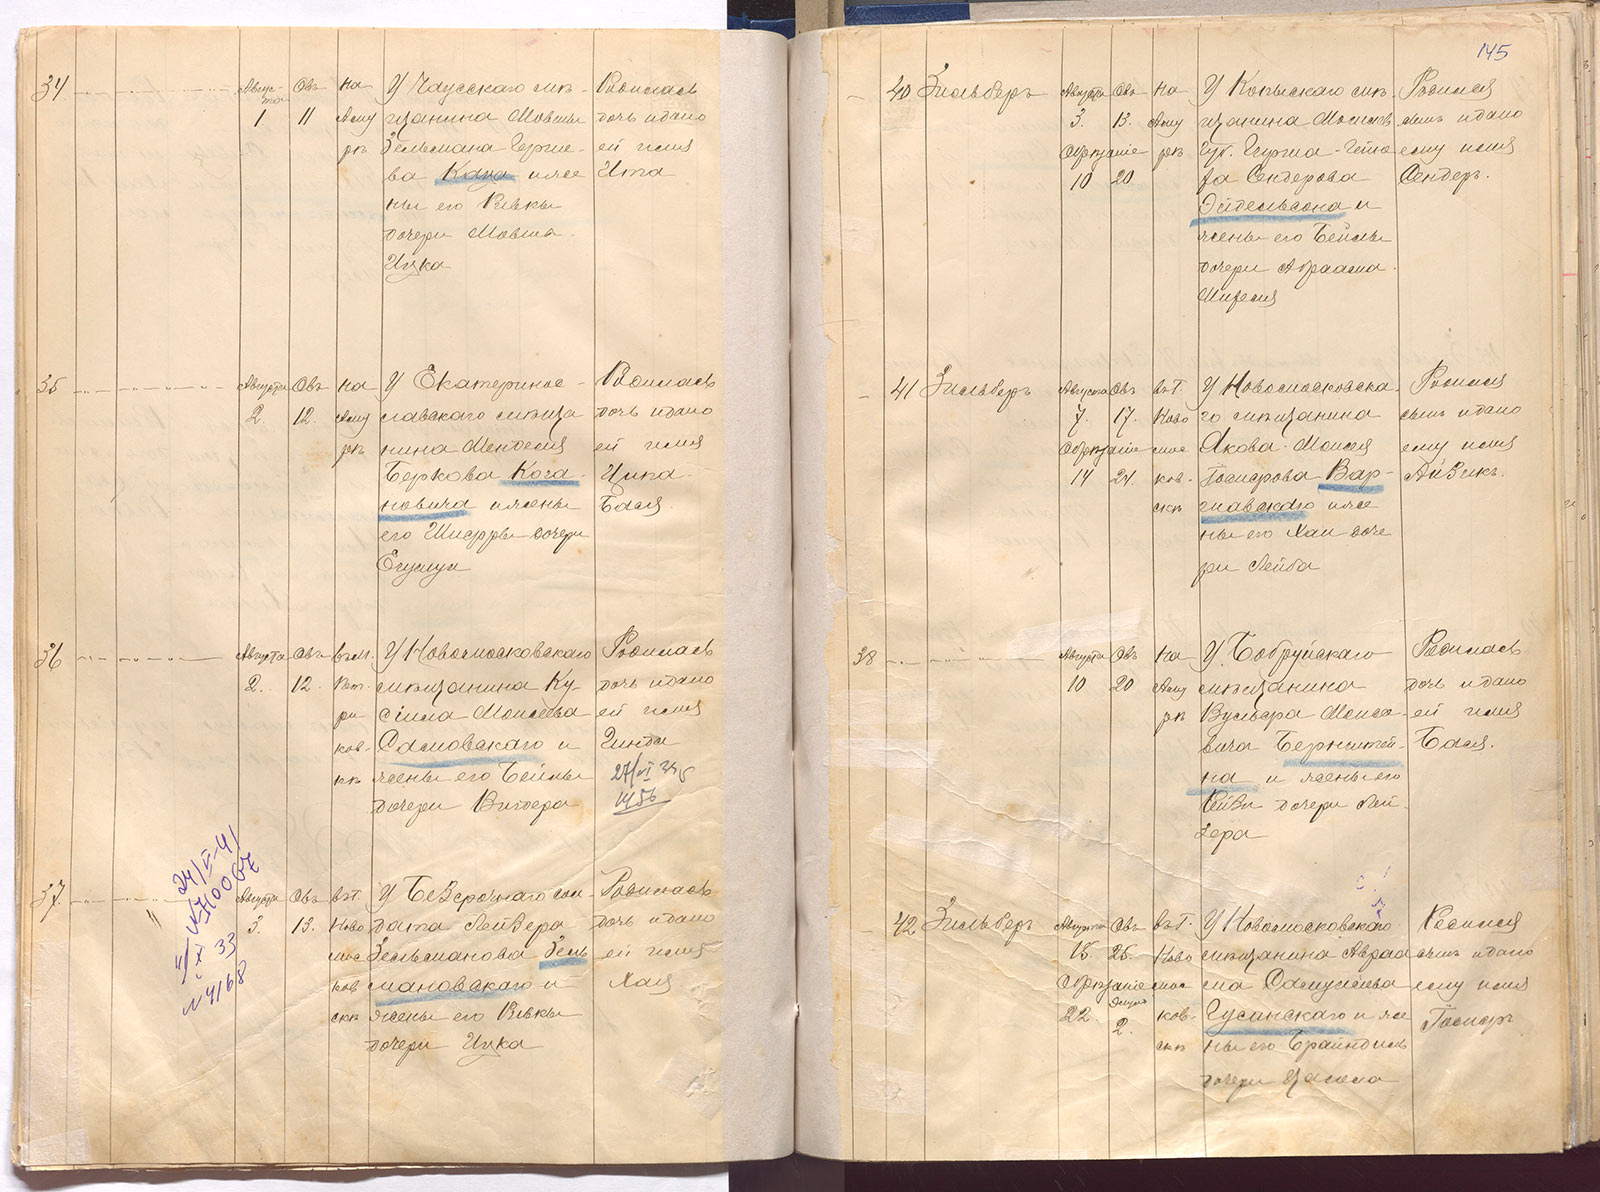 34
Авгус-
та
1.
Овъ
11
на
Аму
рѣ
У Чаусскаго мѣ-
щанина Мовши
Зельмана Герше-
ва Каца и же
ны его Ривки
дочери Мовша
Ицка
Родилась
дочь и дано
ей имя
Ита
35
Августа
2.
Овъ
12.
на
Аму
рѣ
У Екатерино-
славскаго мѣща
нина Менделя
Беркова Кога-
новича и жены
его Шифры дочери
Родилась
дочь и дано
ей имя
Ципа-
Бася.
36
Августа
2.
Овъ
12.
въ М.
У Новомосковскаго
мѣщанина Ку-
сіила Моисеева
и
жены его Бейлы
дочери Вигдера
Родилась
дочь и дано
ей имя
Гинда
27/VI
1456
37.
24/VI-41
№ Ж10067
4/IX 33
№ 4168
Августа
3.
Овъ
13.
въ Г.
Ново
мос
ков
скѣ
У Безсрочнаго сол-
дата Лейзера
Зельманова Зель
мановскаго и
жены его Ривки
дочери Ицка
Родилась
дочь и дано
ей имя
Хая
145
40
Зильберъ
Августа
3.
Обрѣзаніе
10
Овъ
13.
20
на
Аму
рѣ
У Копыскаго мѣ-
щанина Могилев.
Губ. Гирша-Гейно
Сендерова
Эйдельсона и
жены его Бейлы
дочери Абраама
Родился
сынъ и дано
ему имя
Сендеръ.
41
Зильберъ
Августа
7.
Обрѣзаніе
14
Овъ
17.
24.
въ Г.
Ново
мос
ков-
скѣ
У Новомосковска-
го мѣщанина
Якова-Моисея
Іосифова Вар-
шавскаго и же
ны его Хаи доче
ри Лейба
Родился
сынъ и дано
ему имя
Айзикъ.
38
Августа
10
Овъ
20
на
Аму
рѣ
У Бобруйскаго
мѣщанина
Вульфа Моисе-
вича Бернштей-
на и жены его
дочери Лей-
зера
Родилась
дочь и дано
ей имя
Бася.
42.
Зильберъ
Августа
15.
Обрѣзаніе
22.
Овъ
25.
Элулъ
2.
въ Г.
Ново
мос
ков-
скѣ
У Новомосковскаго
мѣщанина Авраа
ма Самуйлова
Гусинскаго и же
ны его Брайндиль
дочери
Родился
сынъ и дано
ему имя
Іосифъ